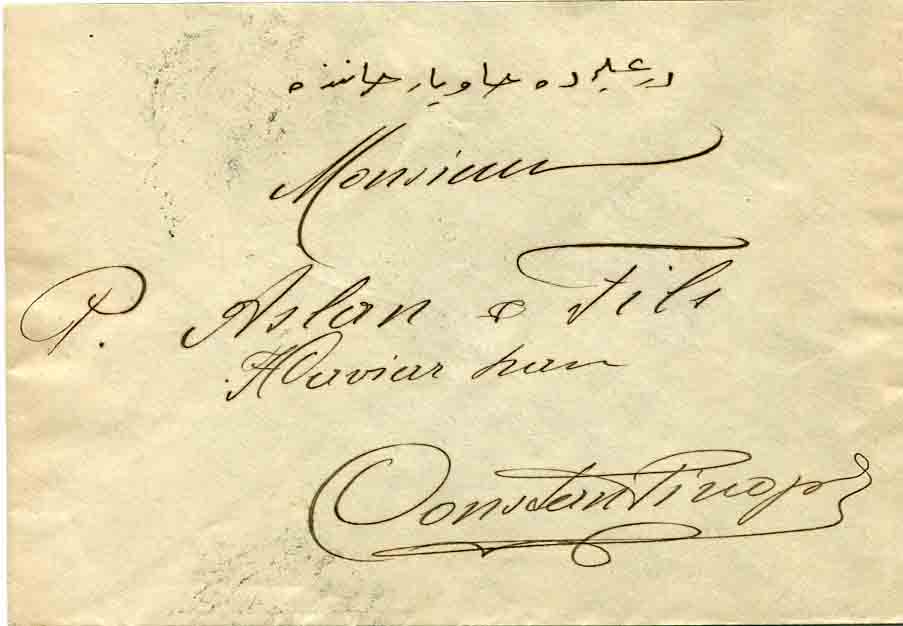 در عليه ده حاويار حاننده
Monsieur
P. Aslan & Fils
Haviar han
Constantinople